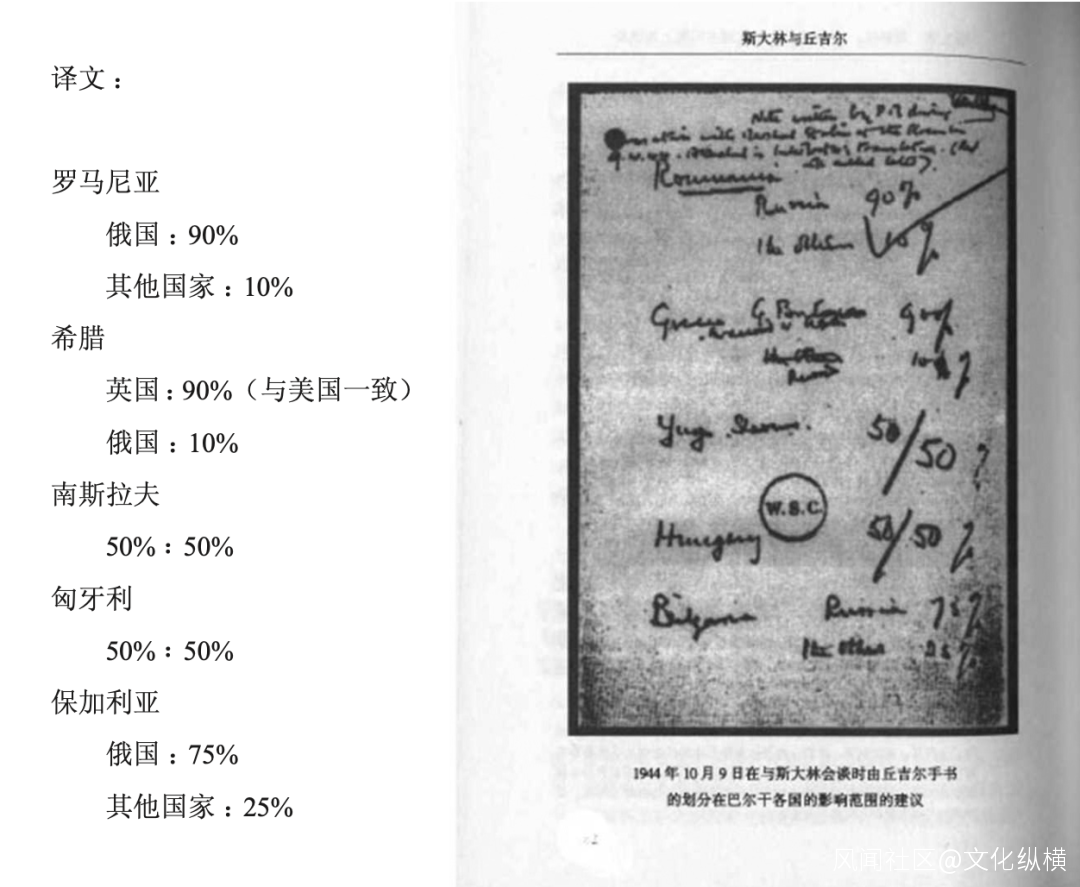 译文：
罗马尼亚
俄国：90%
其他国家：10%
希腊
英国：90%（与美国一致）
俄国：10%
南斯拉夫
50%：50%
匈牙利
50%：50%
保加利亚
俄国：75%
其他国家：25%
斯大林与丘吉尔
Roumania
Russia 90%
The others 10%
90%
Yugo
50/50 %
W.S.C.
Hungary 50/50 %
Bulgaria Russia 75%
The others 25%
1944年10月9日在与斯大林会谈时由丘吉尔手书
的划分在巴尔干各国的影响范围的建议
风闻社区@文化纵横